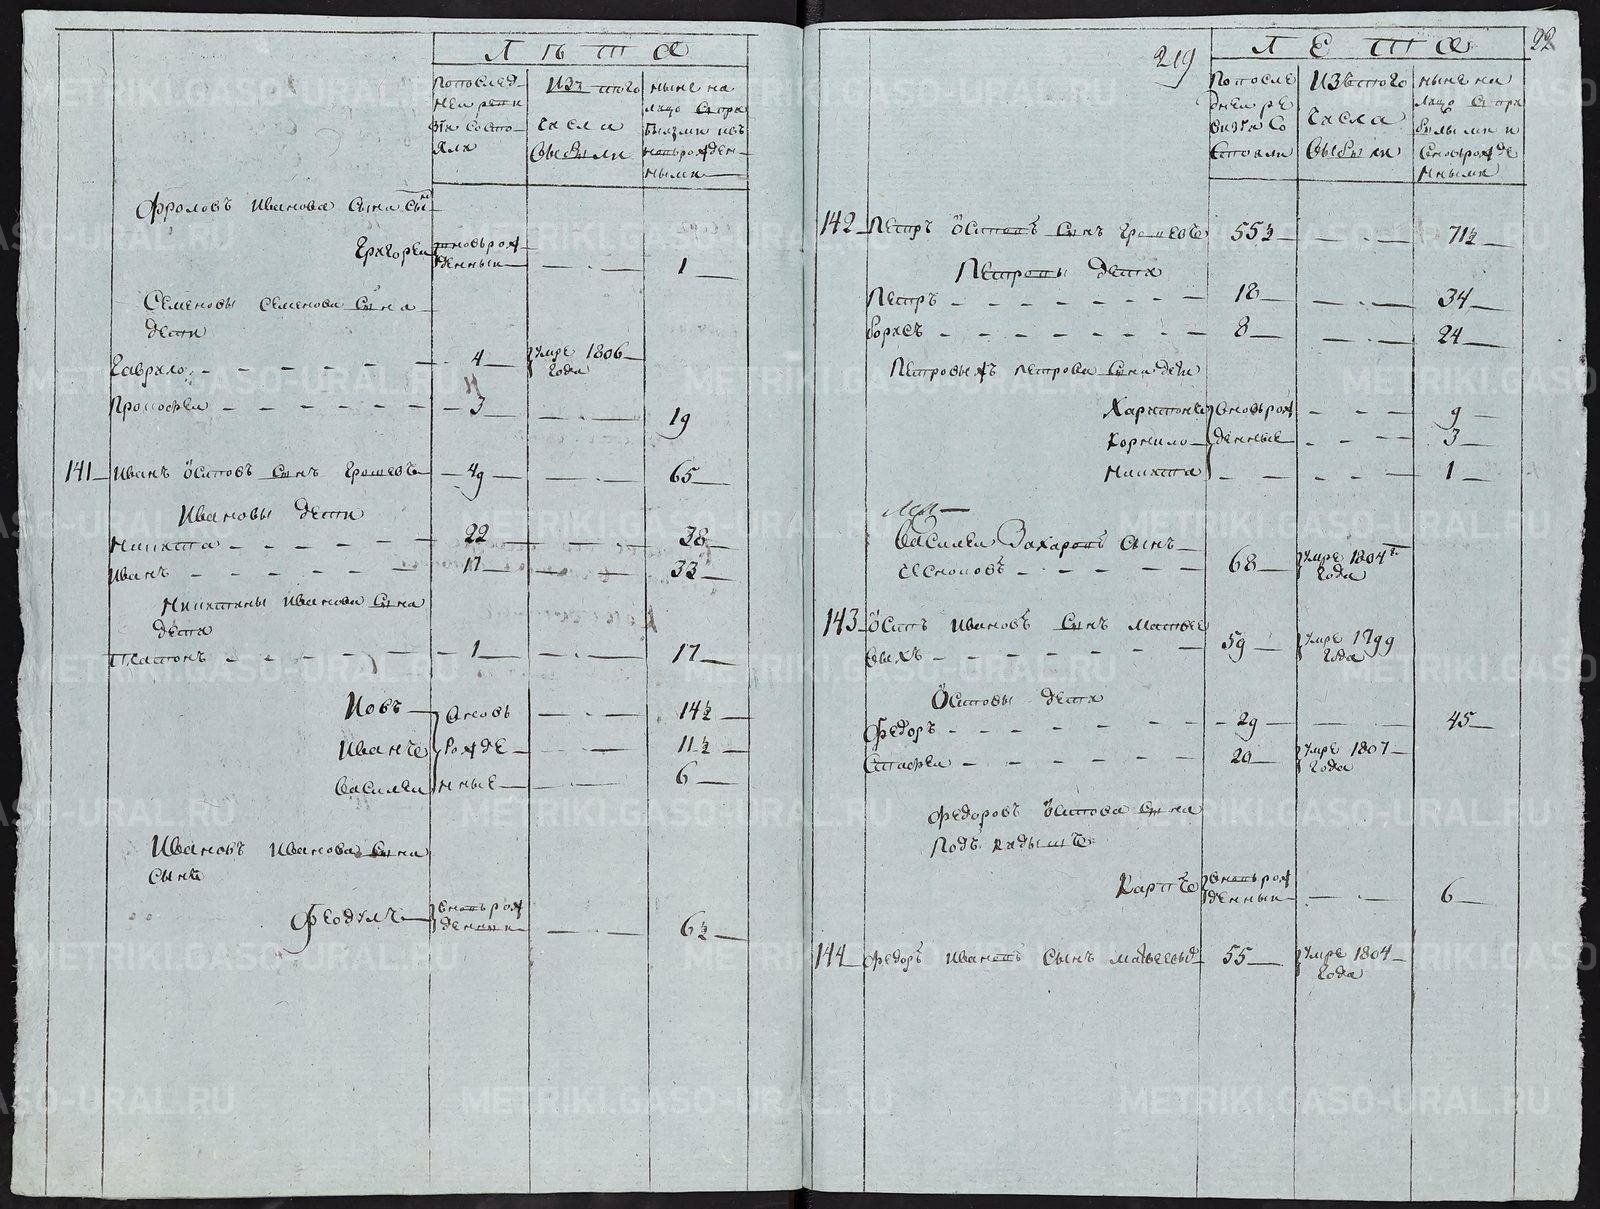 Лѣта
По послед-
ней реви
зїи состо-
яли
Изъ того
числа
выбыли
ныне на
лицо съ при
былыми и въ
новь рожден-
ными
Фроловъ Иванова сына сынъ
Григорей
вновь рож
денный — 1
Семеновы Семенова сына
дети
Гаврило — 4 — умре 1806
года
Прокофей — 3 — 19
141 Иванъ Осиповъ сынъ Ерошевъ — 49 — 65
Ивановы дети
Никита — 22 — 38
Иванъ — 17 — 33
Никитины Иванова сына
дети
Платонъ — 1 — 17
Иовъ — вновь — 14½
Иванъ — рожде — 11½
Василей — нные — 6
Ивановъ Иванова сына
сынъ
Феодулъ — вновь рож
денный — 6½
219
22
Лета
По после
дней ре
визїи со
стояли
Изъ того
числа
выбыли
ныне на
лицо съ при
былыми и
вновь рожде
нными
142 Петръ Осиповъ сынъ Ерошевъ — 55½ — 71½
Петровы дети
Петръ — 18 — 34
Борисъ — 8 — 24
Петровыхъ Петрова сына дети
Харитонъ — вновь рож — 9
Корнило — денные — 3
Никита — 1
Василей Захаровъ сынъ
68 — умре 1804г.
года
143 Осипъ Ивановъ сынъ Матвее
выхъ — 59 — умре 1799
года
Осиповы дети
Федоръ — 29 — 45
Стафей — 20 — умре 1807
года
Федоровъ Осипова сына
подъкидышъ
Карпъ — вновь рож
денный — 6
144 Федоръ Ивановъ сынъ Матвеевыхъ — 55 — умре 1804
года
METRIKI.GASO-URAL.RU